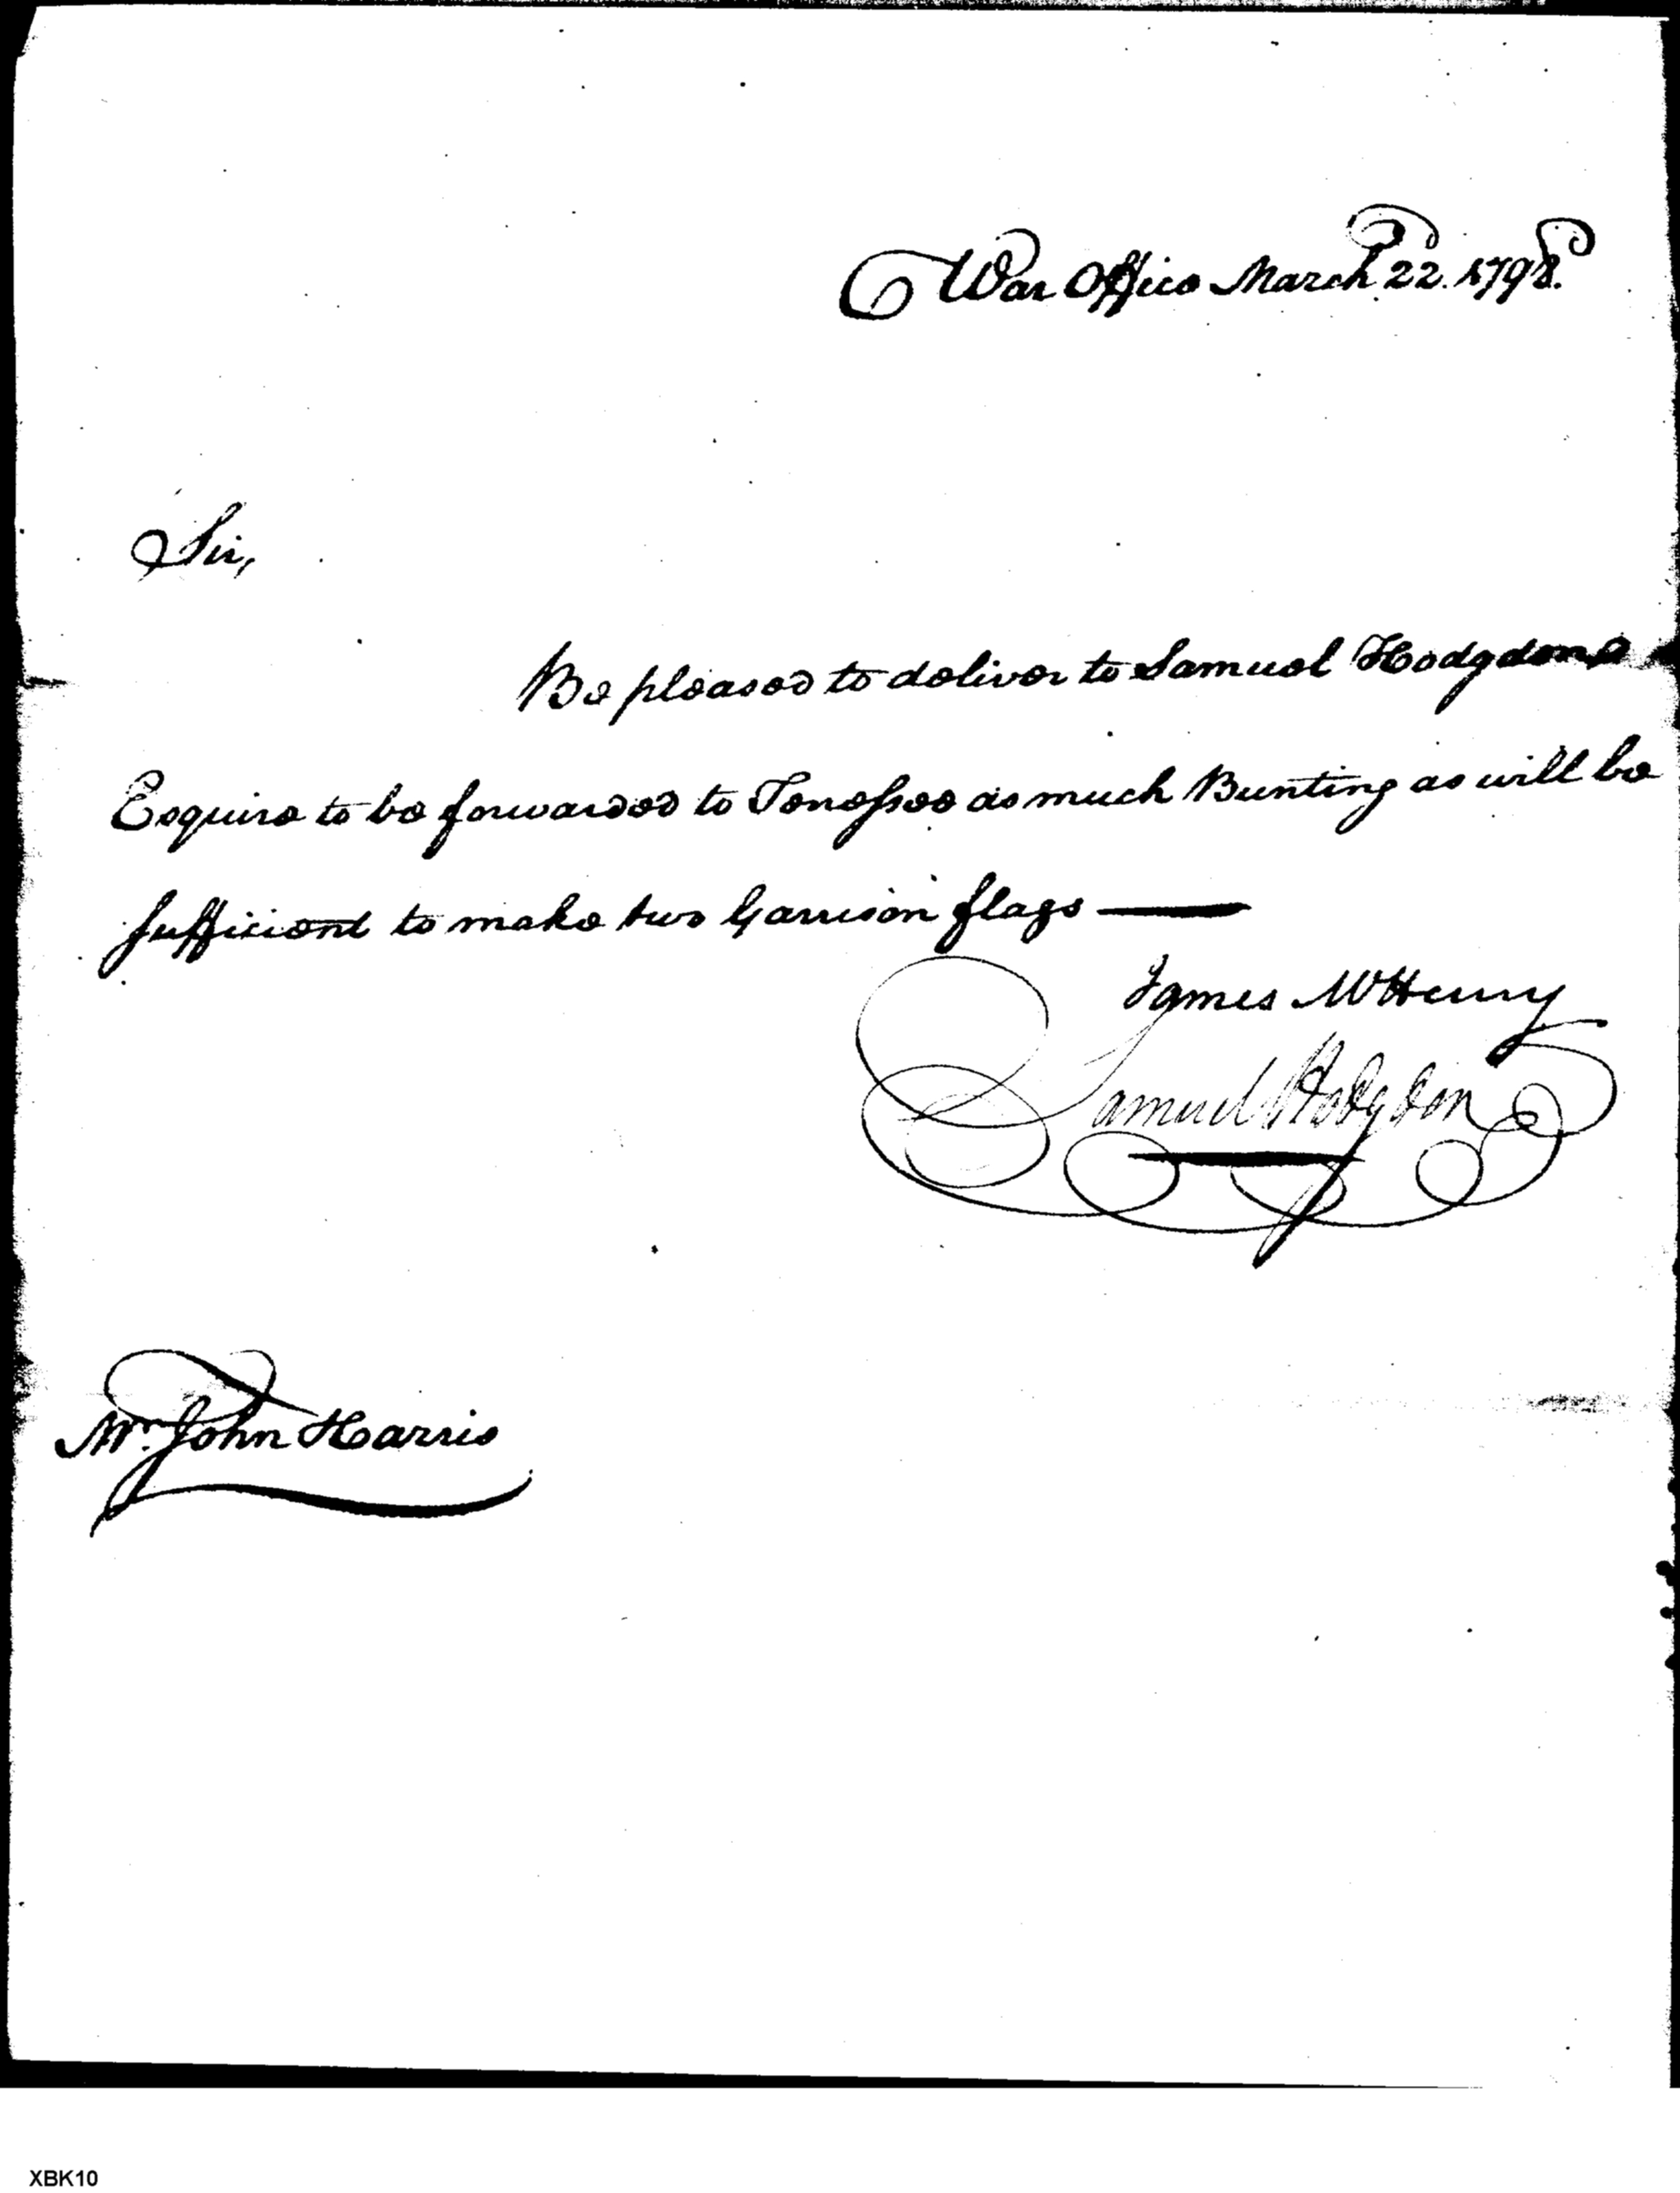 War Office March 22. 1798.
Sir,
Be pleased to deliver to Samuel Hodgdon
Esquire to be forwarded to Tenessee as much Bunting as will be
sufficient to make two Garrison flags —
James McHenry
Samuel Hodgdon
Mr. John Harris
XBK10